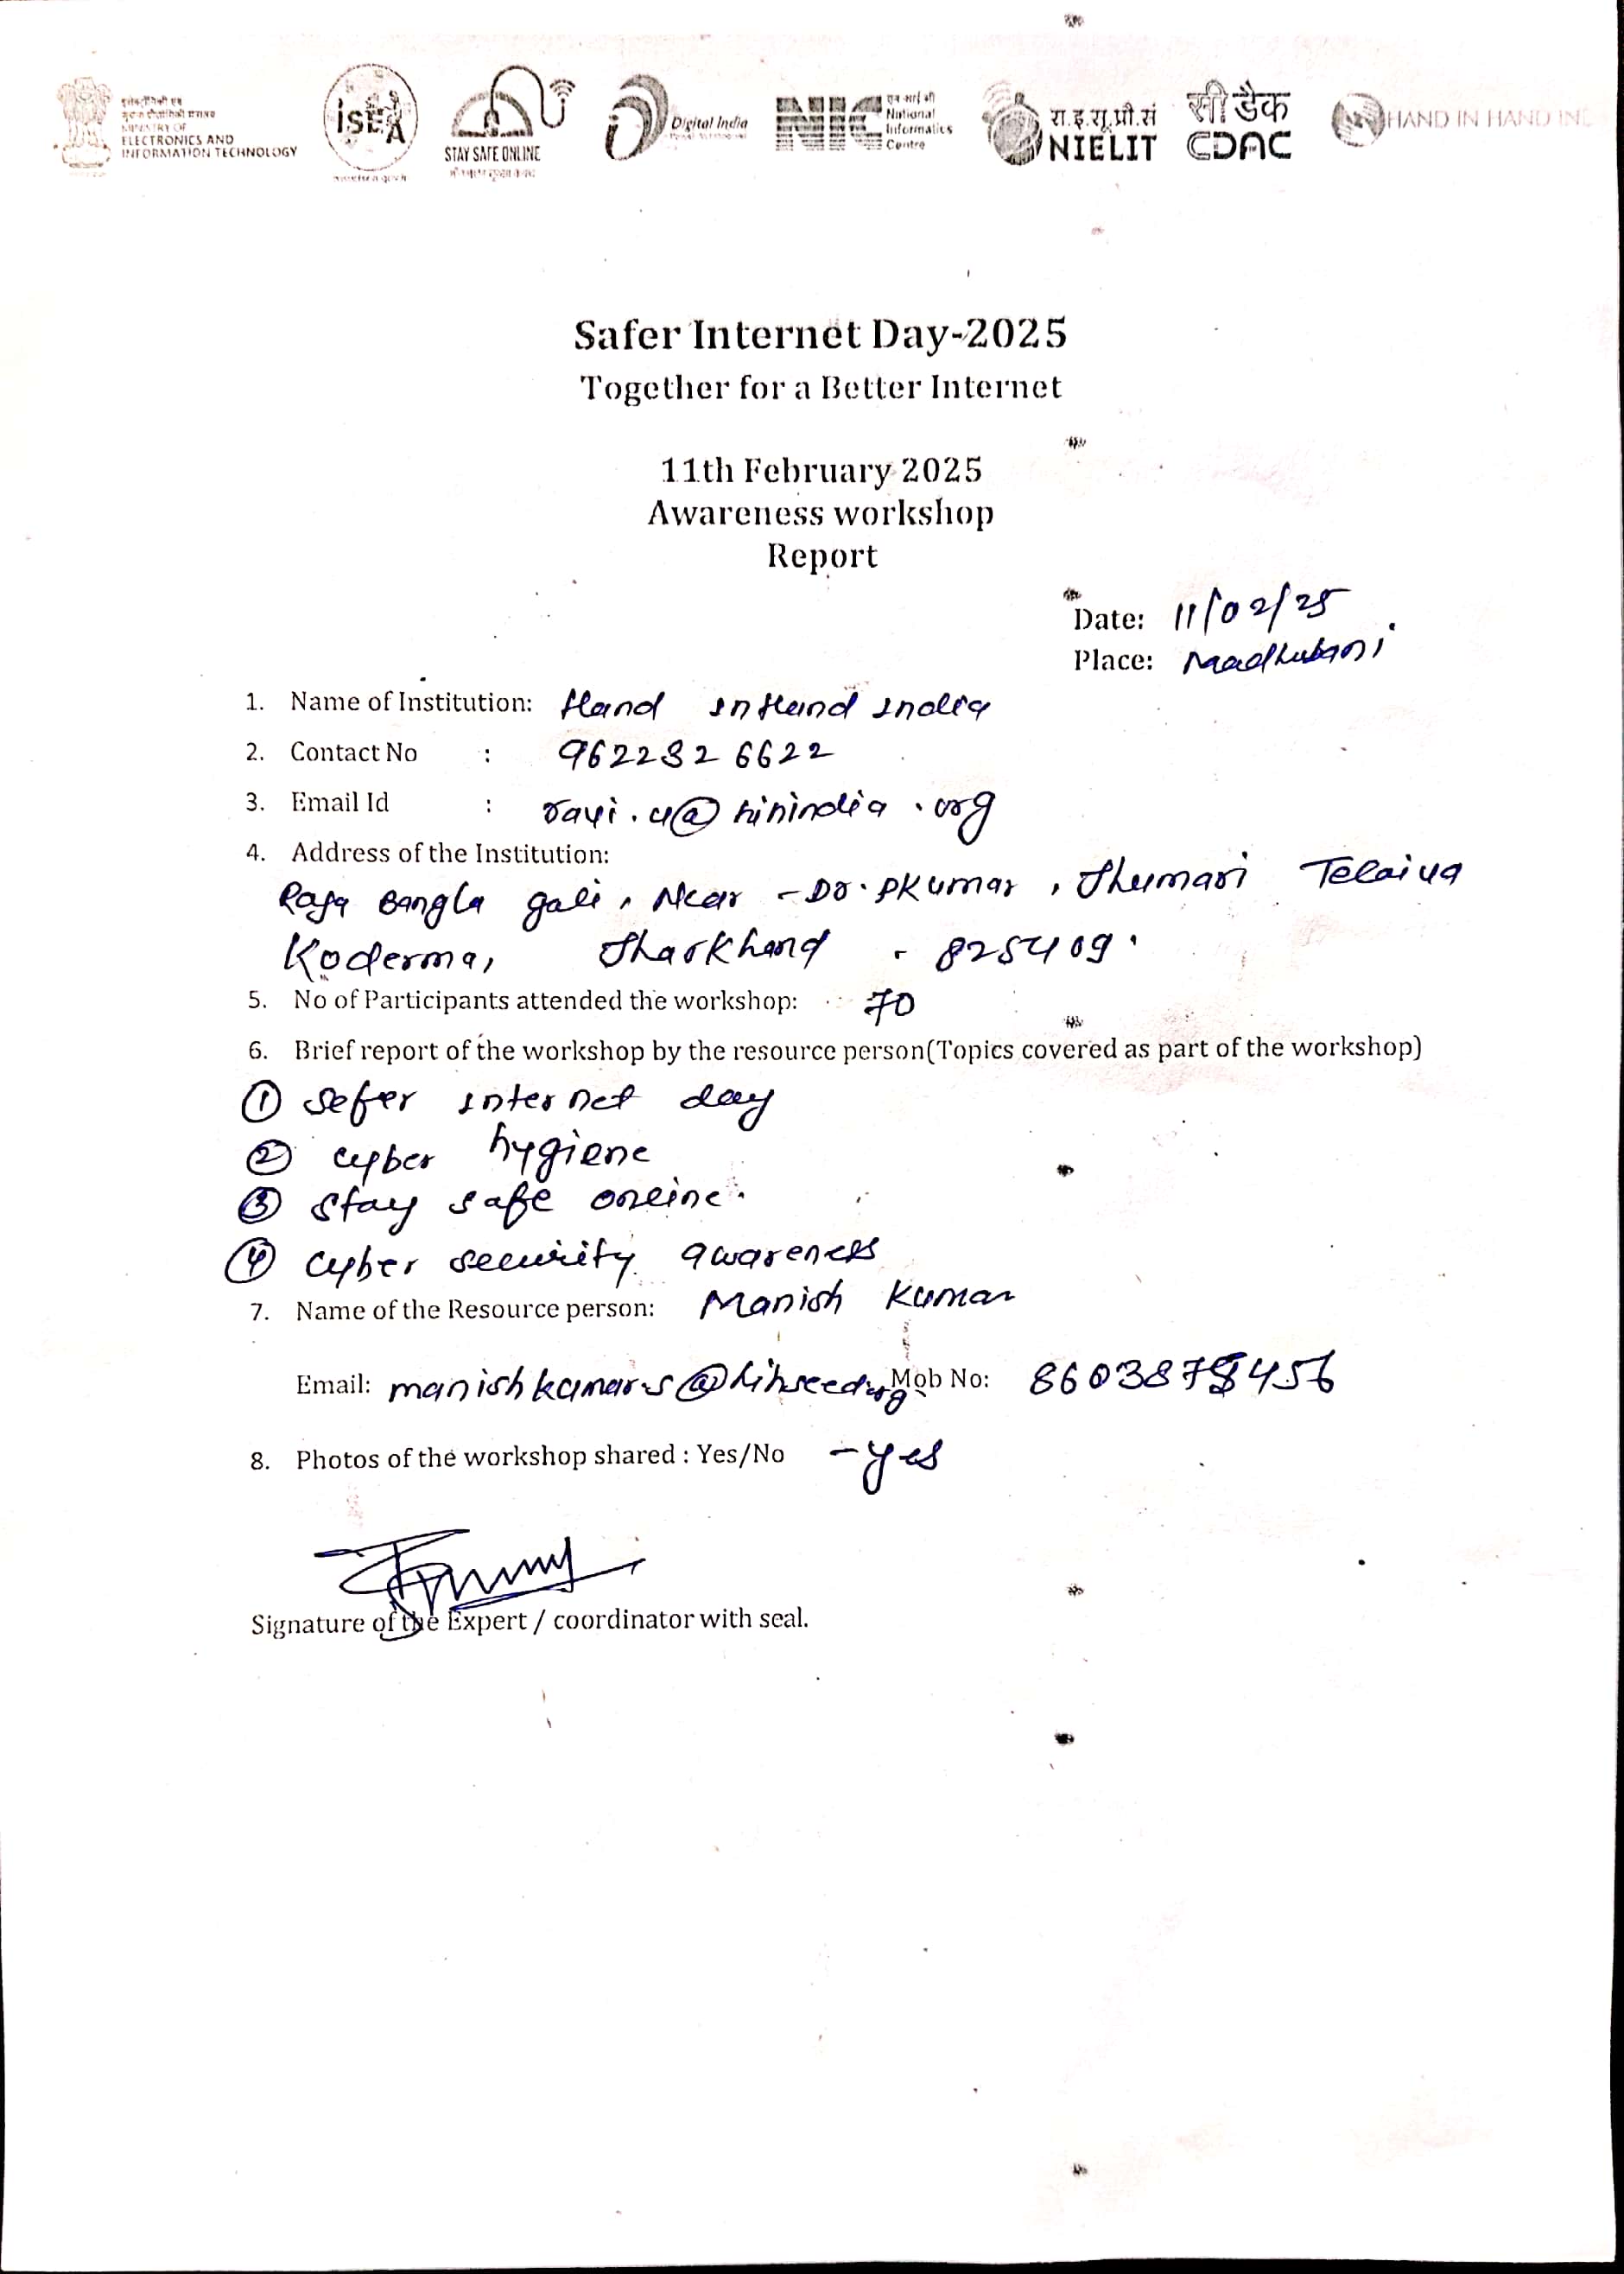 इलेक्ट्रॉनिकी एवं
सूचना प्रौद्योगिकी मंत्रालय
MINISTRY OF
ELECTRONICS AND
INFORMATION TECHNOLOGY
iSEA
STAY SAFE ONLINE
Digital India
NIC
एन आई सी
National
Informatics
Centre
रा.इ.सू.प्रौ.सं
NIELIT
सी डैक
CDAC
HAND IN HAND IND
Safer Internet Day-2025
Together for a Better Internet
11th February 2025
Awareness workshop
Report
Date: 11/02/25
Place: Madhubani
1. Name of Institution: Hand InHand India
2. Contact No : 9622326622
3. Email Id : @hihindia.org
4. Address of the Institution:
Raja Bangla gali, Near - Dr. PKumar, Jhumari Telaiya
Koderma, Jharkhand - 825409.
5. No of Participants attended the workshop: 70
6. Brief report of the workshop by the resource person(Topics covered as part of the workshop)
① Sefer internet day
② cyber hygiene
③ Stay safe online.
④ cyber security awareness
7. Name of the Resource person: Manish Kumar
Email: Mob No:
8. Photos of the workshop shared : Yes/No - yes
Signature of the Expert / coordinator with seal.